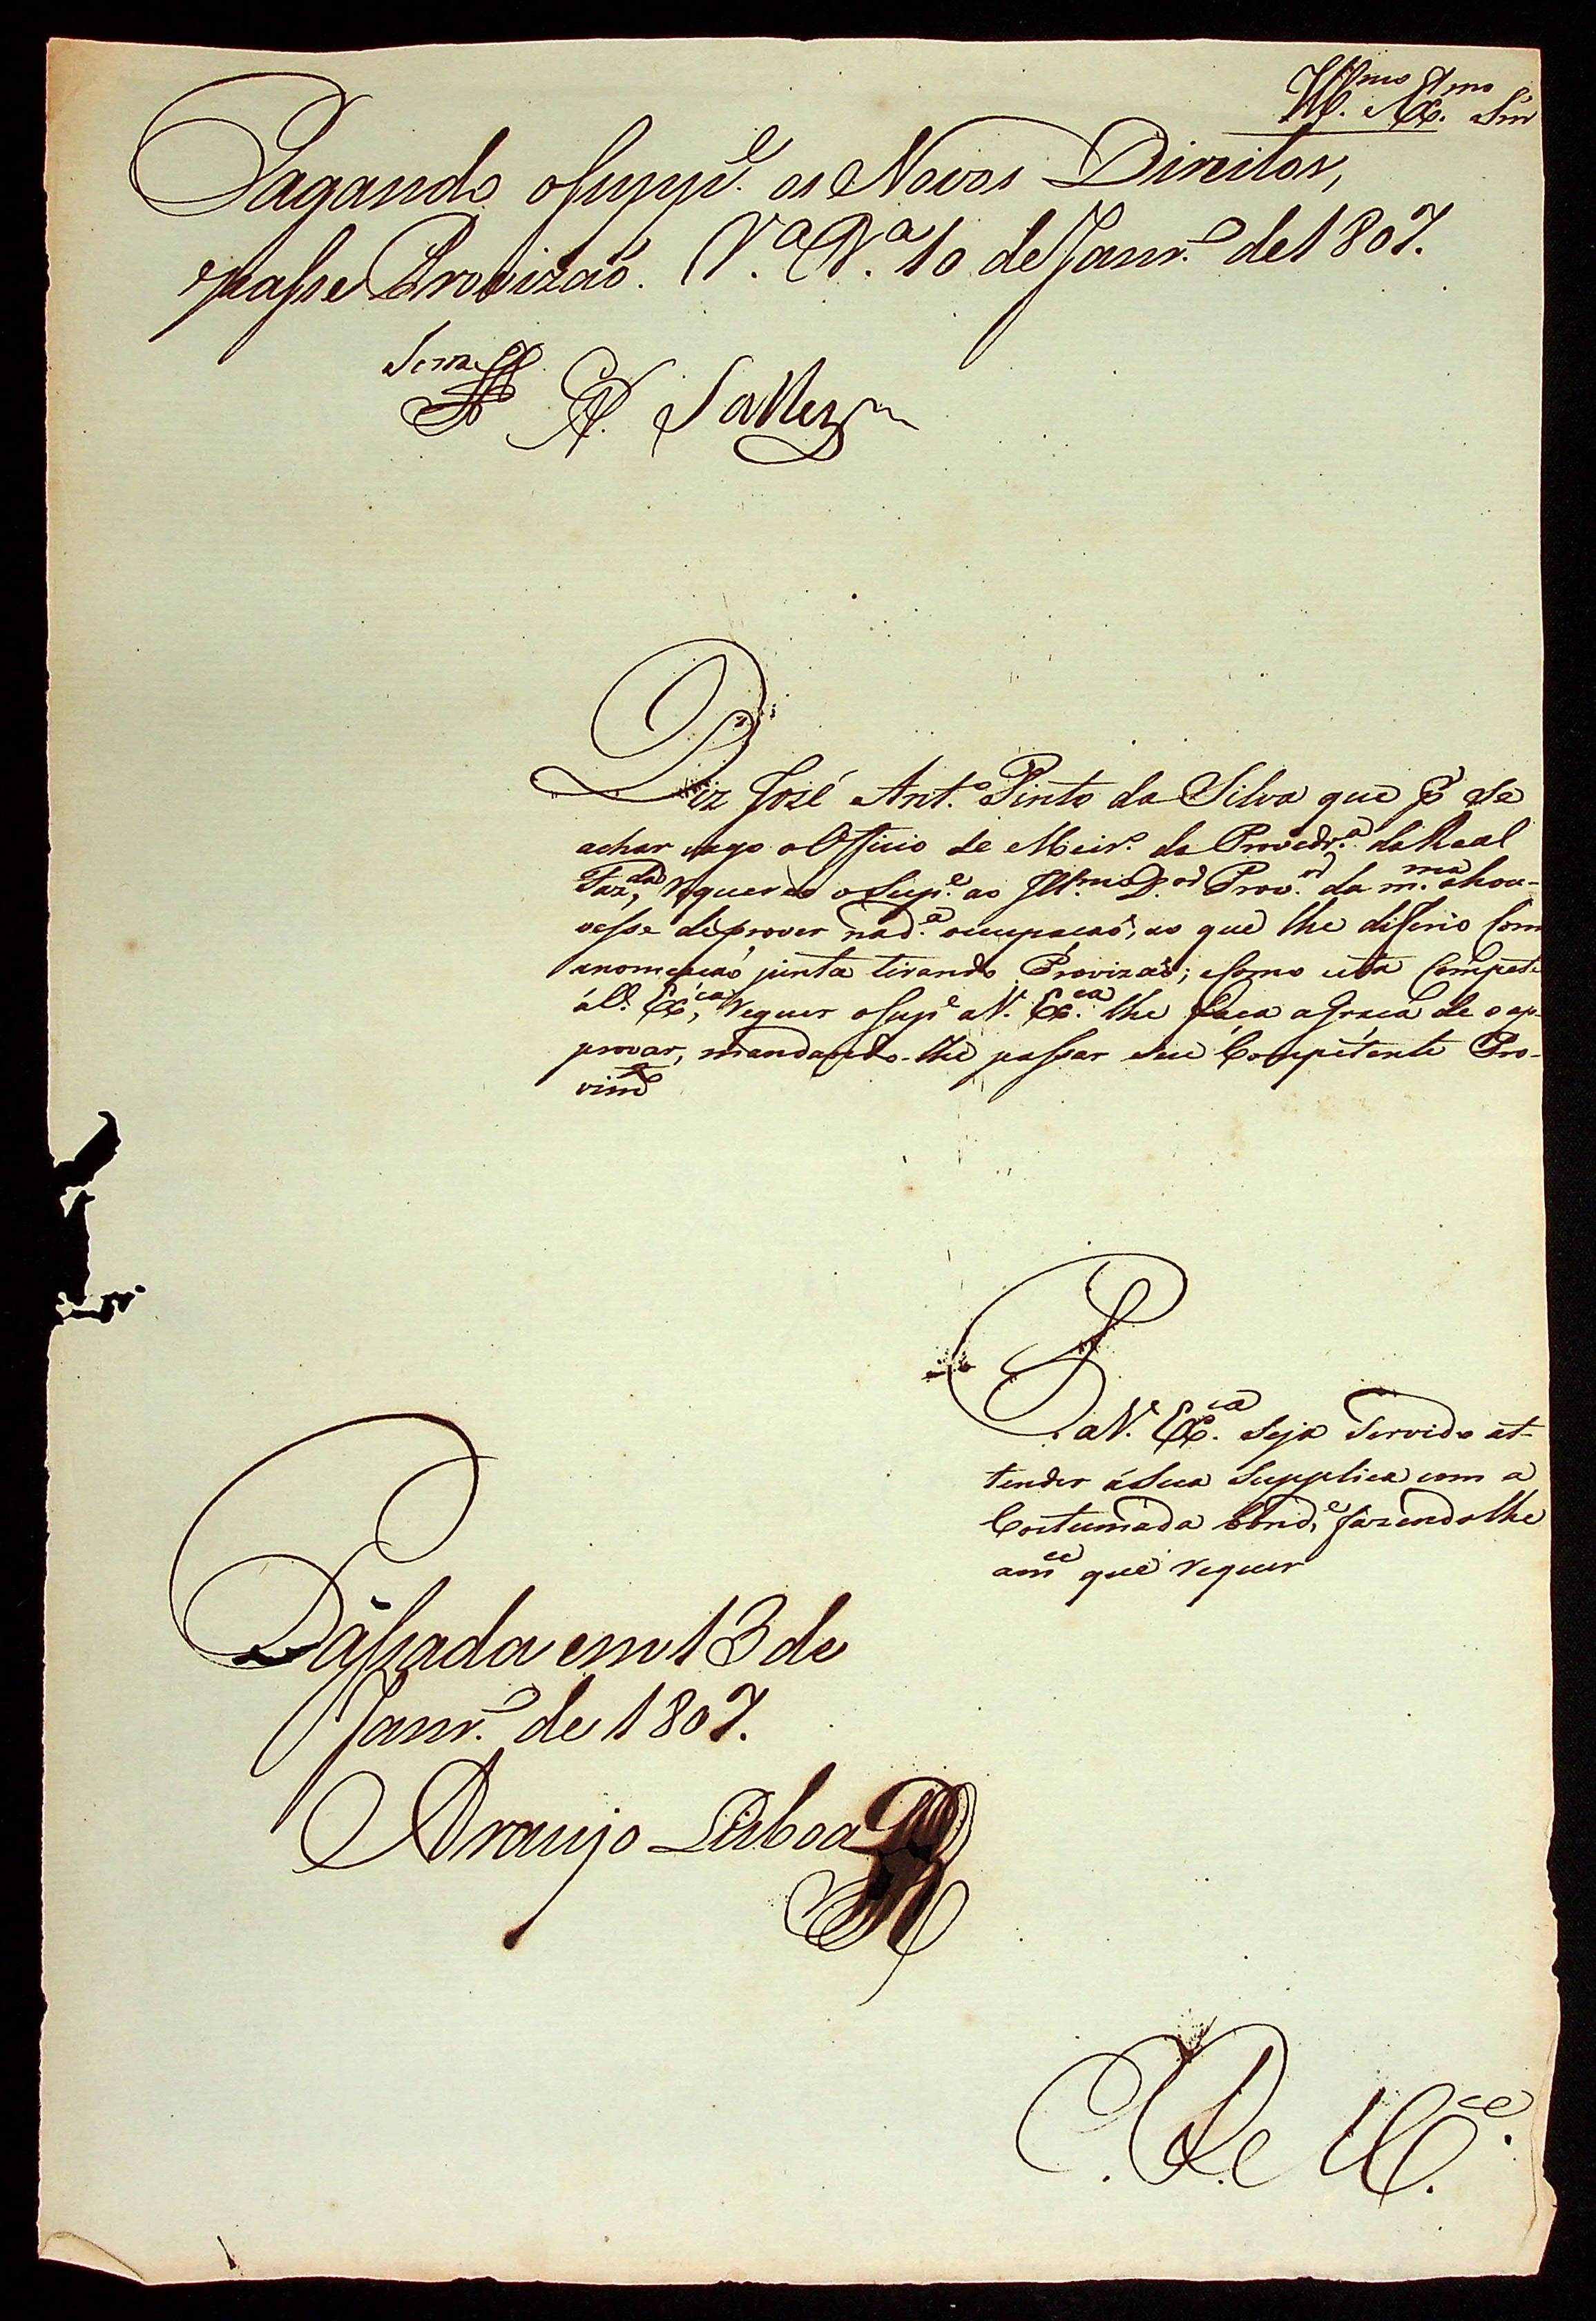 Ill.mo Ex.mo Snr
Pagando o Supp.e os Novos Direitos,
passe Provizaõ. V.a R.a 10 de Janr.o de 1807.
Serra
Diz José Ant.o Pinto da Silva que p.r se
achar vago o Officio de Meir.o da Provedr.a da Real
Faz.da, requereo o Sup.e ao Ill.mo D.or Prov.or da m.ma hou-
vesse de prover na d.a ocupaçaõ, ao que lhe diferio Com
a nomeaçaõ junta tirando Provizaõ; e Como esta Compete
á V. Ex.ca, requer o Sup.e a V. Ex.ca lhe faça a Graça de o ap-
provar, mandando-lhe passar seu Competente Pro-
vim.to
P.
a V. Ex.ca seja Servido at-
tender á Sua Supplica com a
Costumada bond.e, fazendo lhe
a m.ce que requer
Passada em 13 de
Janr.o de 1807.
Araujo Lisboa
E. R. M.ce